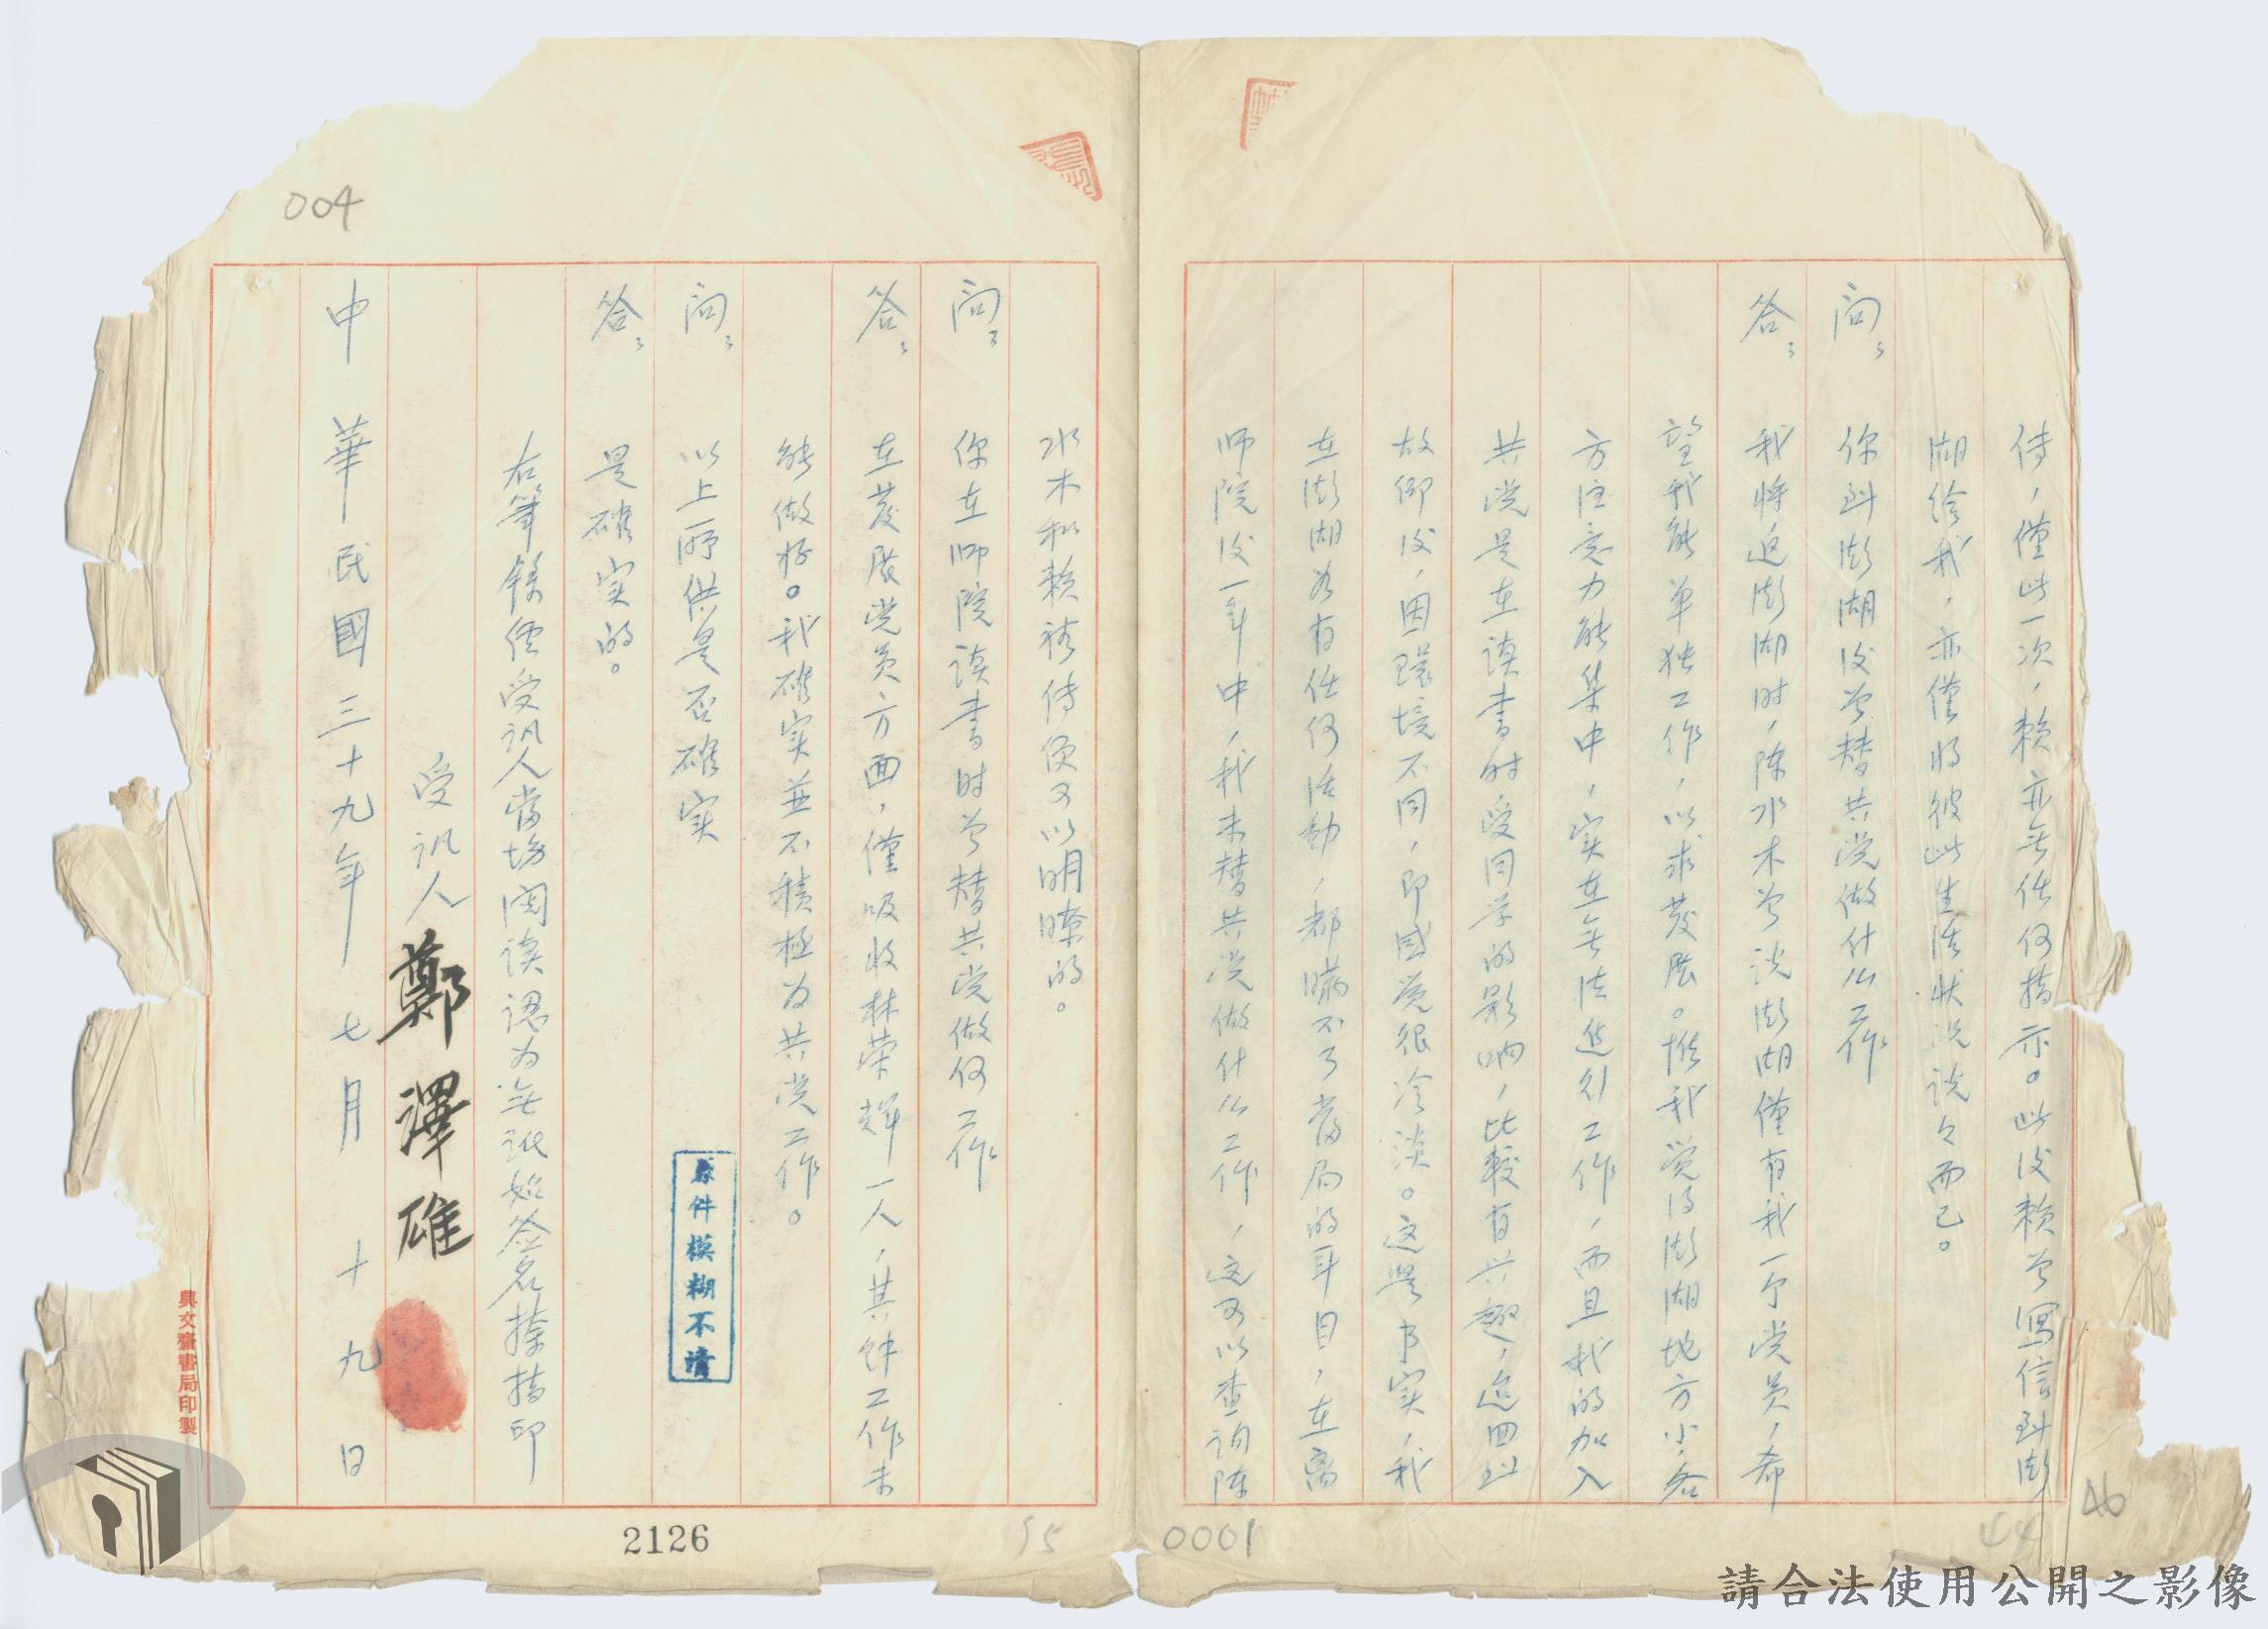 侍，僅此一次，賴亦無任何指示。此後賴曾寫信到澎
湖給我，亦僅將彼此生活狀況談々而已。
问：你到澎湖後曾替共党做什么工作
答：我將返澎湖时，陈水木曾谈澎湖僅有我一个党员，希
望我能单独工作，以求发展。惟我觉得澎湖地方小，各
方注意力能集中，实在無法進行工作，而且我的加入
共党是在读書时，受同学的影响，比較有兴趣，迨回到
故鄉後，因環境不同，即感觉很冷淡。这是事实，我
在澎湖若有任何活動，都瞒不了當局的耳目，在离
师院後一年中，我未替共党做什么工作，这可以查询陈
水木和赖裕传便可以明瞭的。
问：你在师院读書时曾替共党做何工作
答：在发展党员方面，僅吸收林荣輝一人，其餘工作未
能做好。我確实並不積極为共党工作。
问：以上所供是否確实
答：是確实的。
右筆錄經受訊人當場閱读認为無訛始签名捺指印
受訊人 鄭澤雄
中華民國三十九年七月十九日
原件模糊不清
興文齋書局印製
004
2126
0001
46
請合法使用公開之影像